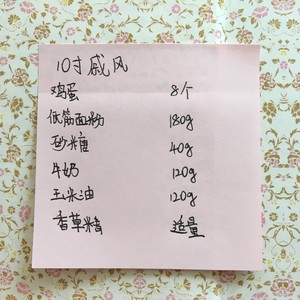 10寸戚风
鸡蛋 8个
低筋面粉 180g
砂糖 40g
牛奶 120g
玉米油 120g
香草精 适量